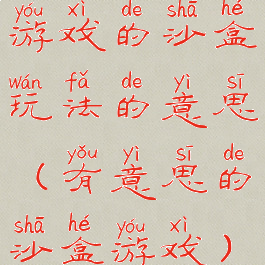 yóu xì de shā hé
游戏的沙盒
wán fǎ de yì sī
玩法的意思
yǒu yì sī de
（有意思的
shā hé yóu xì
沙盒游戏）